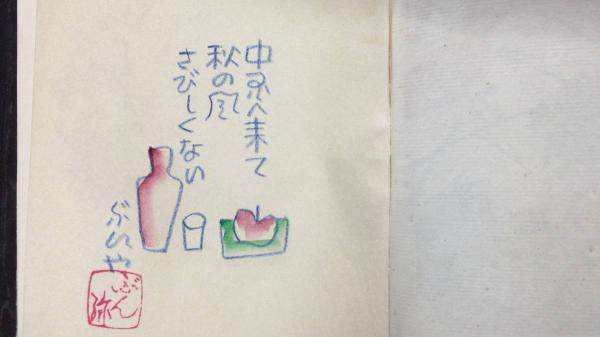 中忍へ来て
秋の風
さびしくない
ぶんや
ぶん
弥